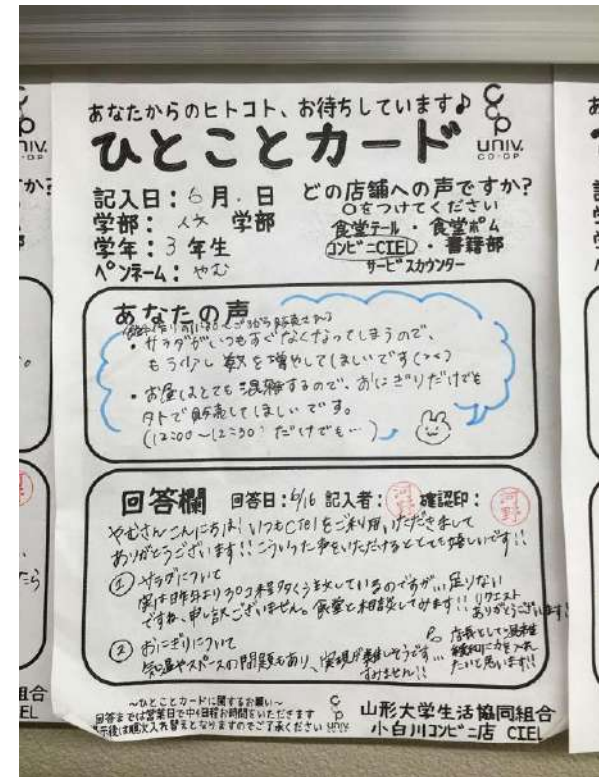 あなたからのヒトコト、お待ちしています♪
ひとことカード
UNIV.
CO-OP
記入日：6月.日
学部：人文 学部
学年：3 年生
ペンネーム：やむ
どの店舗への声ですか?
○をつけてください
食堂テール・食堂ポム
コンビニCIEL・書籍部
サービスカウンター
あなたの声
・サラダがいつもすぐなくなってしまうので、
もう少し数を増やしてほしいです(><)
・お昼はとても混雑するので、おにぎりだけでも
外で販売してほしいです。
(12:00〜12:30 だけでも…)
回答欄 回答日：6/16 記入者：河野 確認印：河野
やむさんこんにちは! いつもCIELをご利用いただきまして
ありがとうございます!! こういった声をいただけるととても嬉しいです!!
① サラダについて
実は昨年より 多く注文しているのですが… 足りない
ですね、申し訳ございません。食堂と相談してみます!! リクエスト
ありがとうございます!
② おにぎりについて
気温やスペースの問題もあり、実現が難しそうです…
すみません!!
店長として混雑
緩和に力を入れ
たいと思います!!
〜ひとことカードに関するお願い〜
回答までは営業日で中4日程お時間をいただきます
後は順次入れ替えとなりますのでご了承ください
UNIV.
山形大学生活協同組合
小白川コンビニ店 CIEL